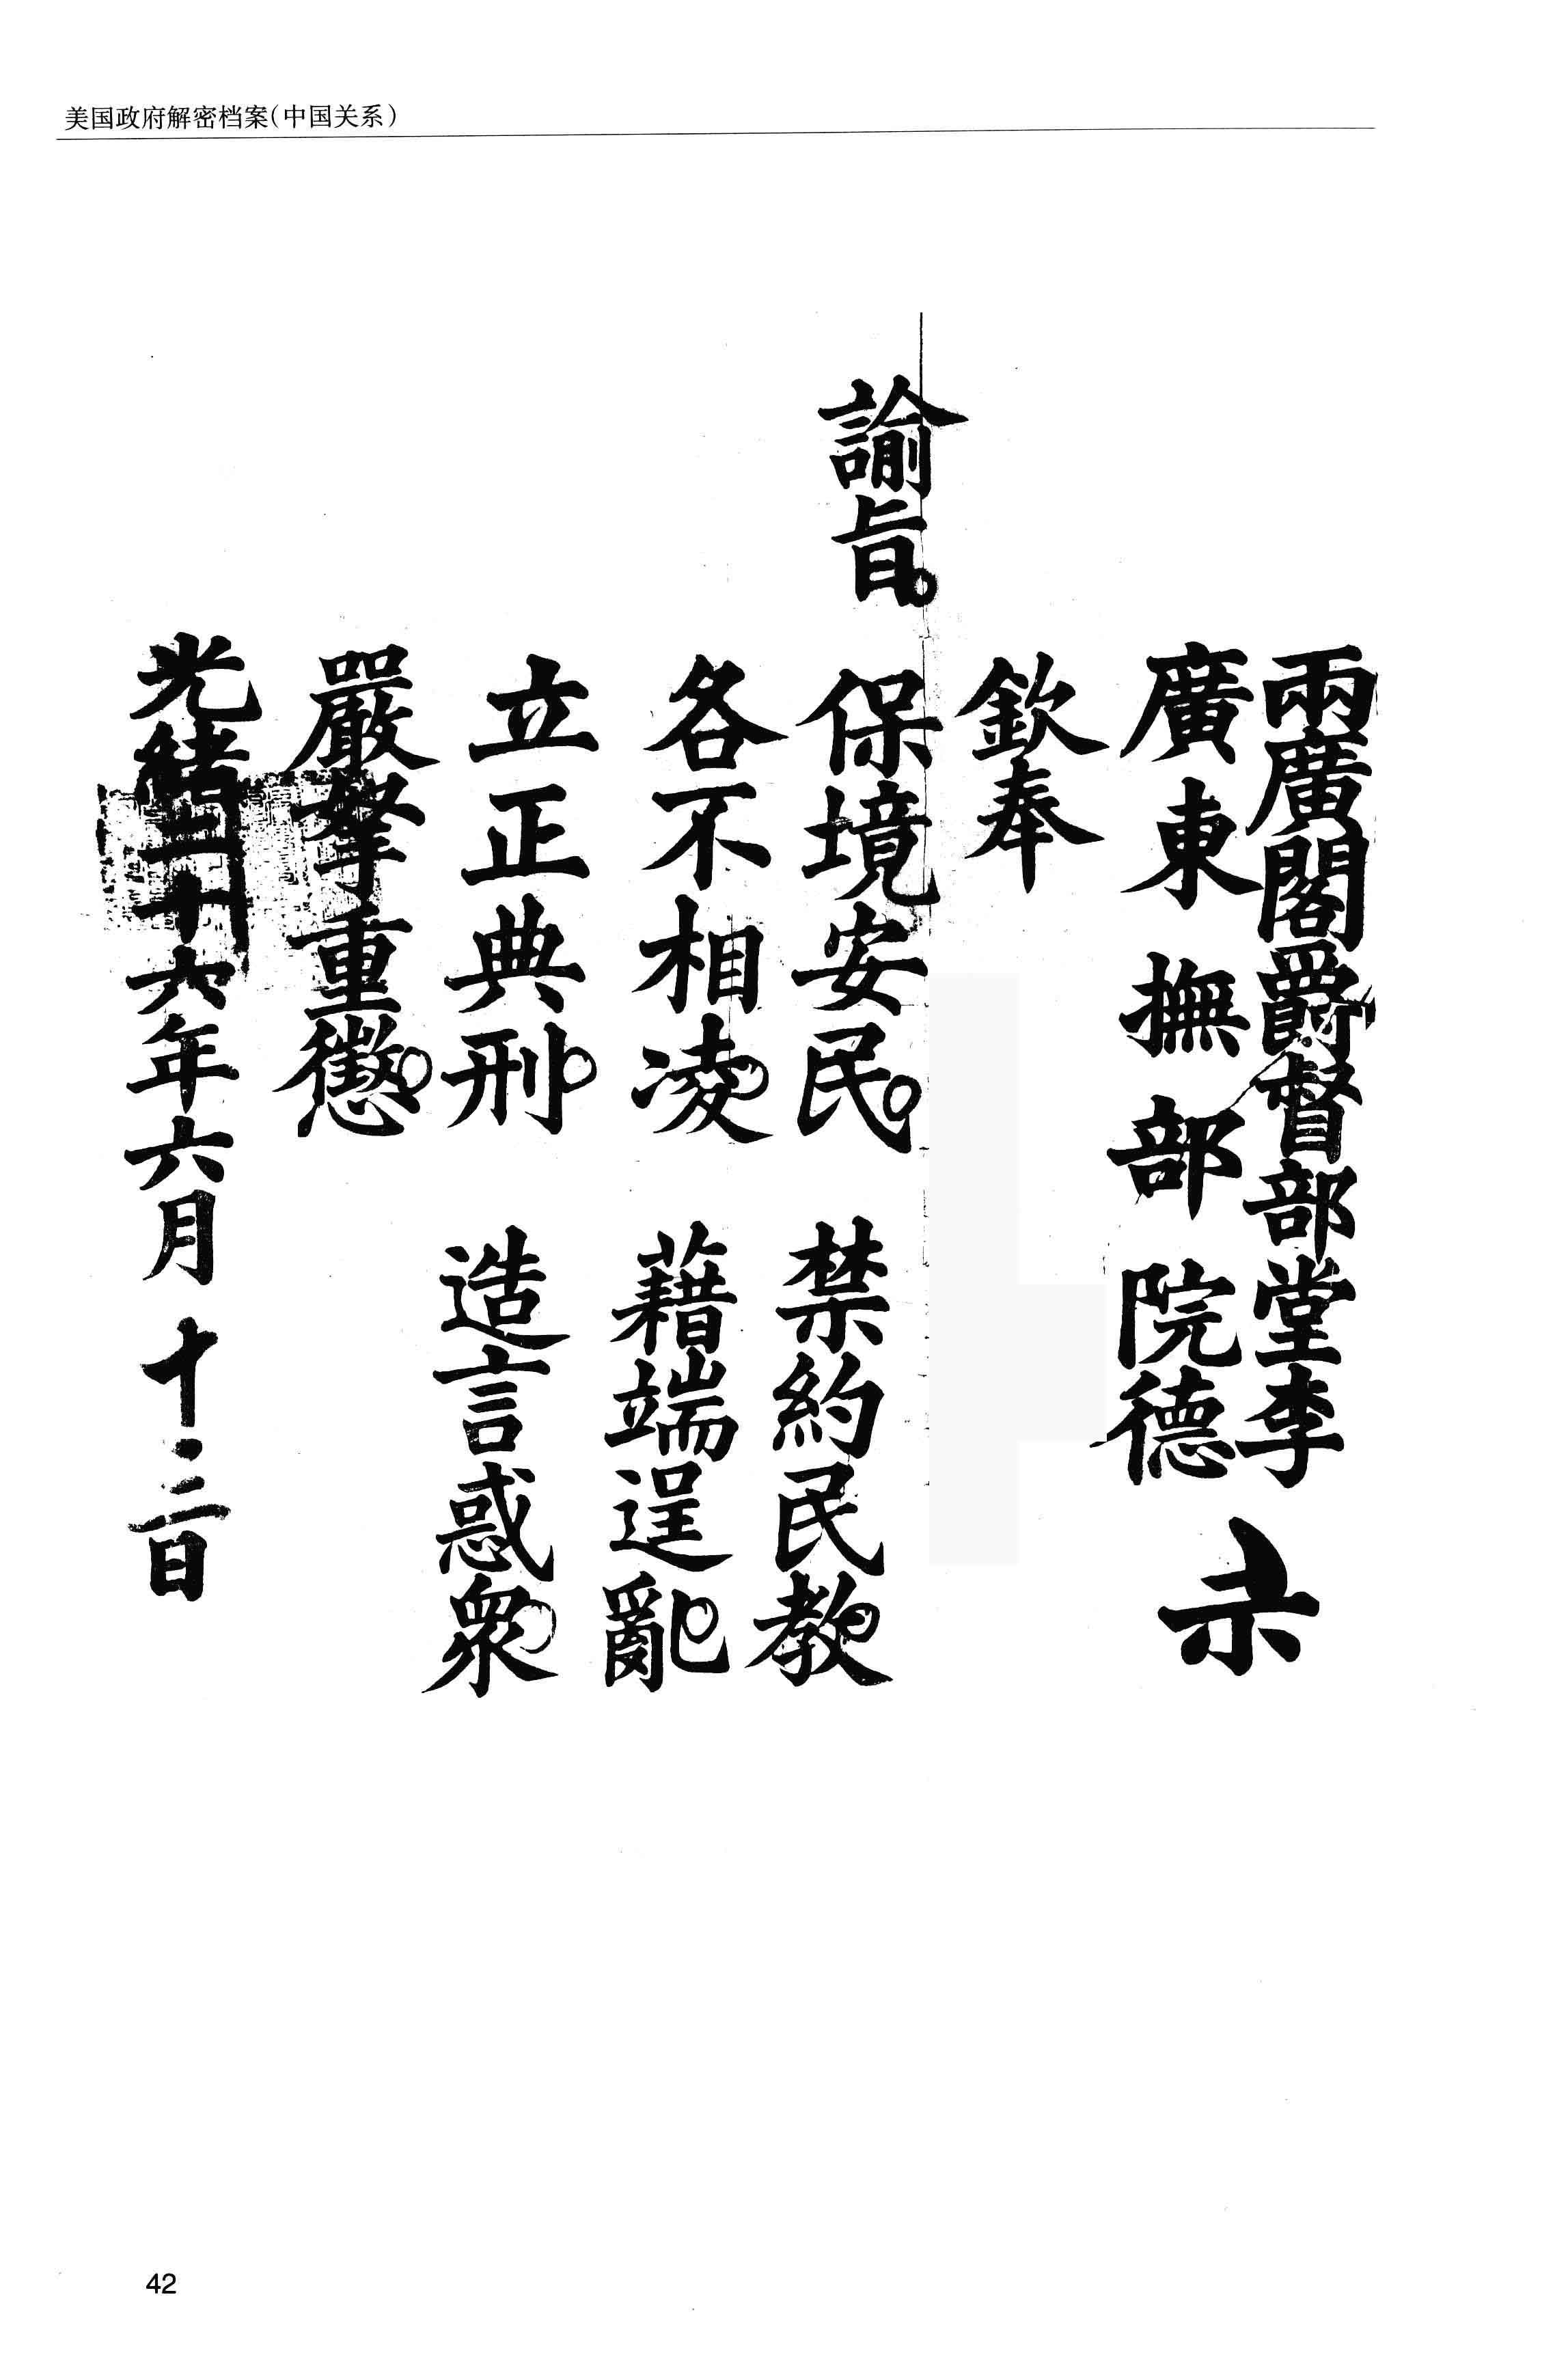 美国政府解密档案(中国关系)
兩廣閣爵督部堂李
廣東撫部院德
示
欽奉
諭旨。
保境安民。禁約民教
各不相凌。藉端逞亂。
立正典刑。造言惑衆。
嚴拏重懲。
光緒二十六年六月十二日
42